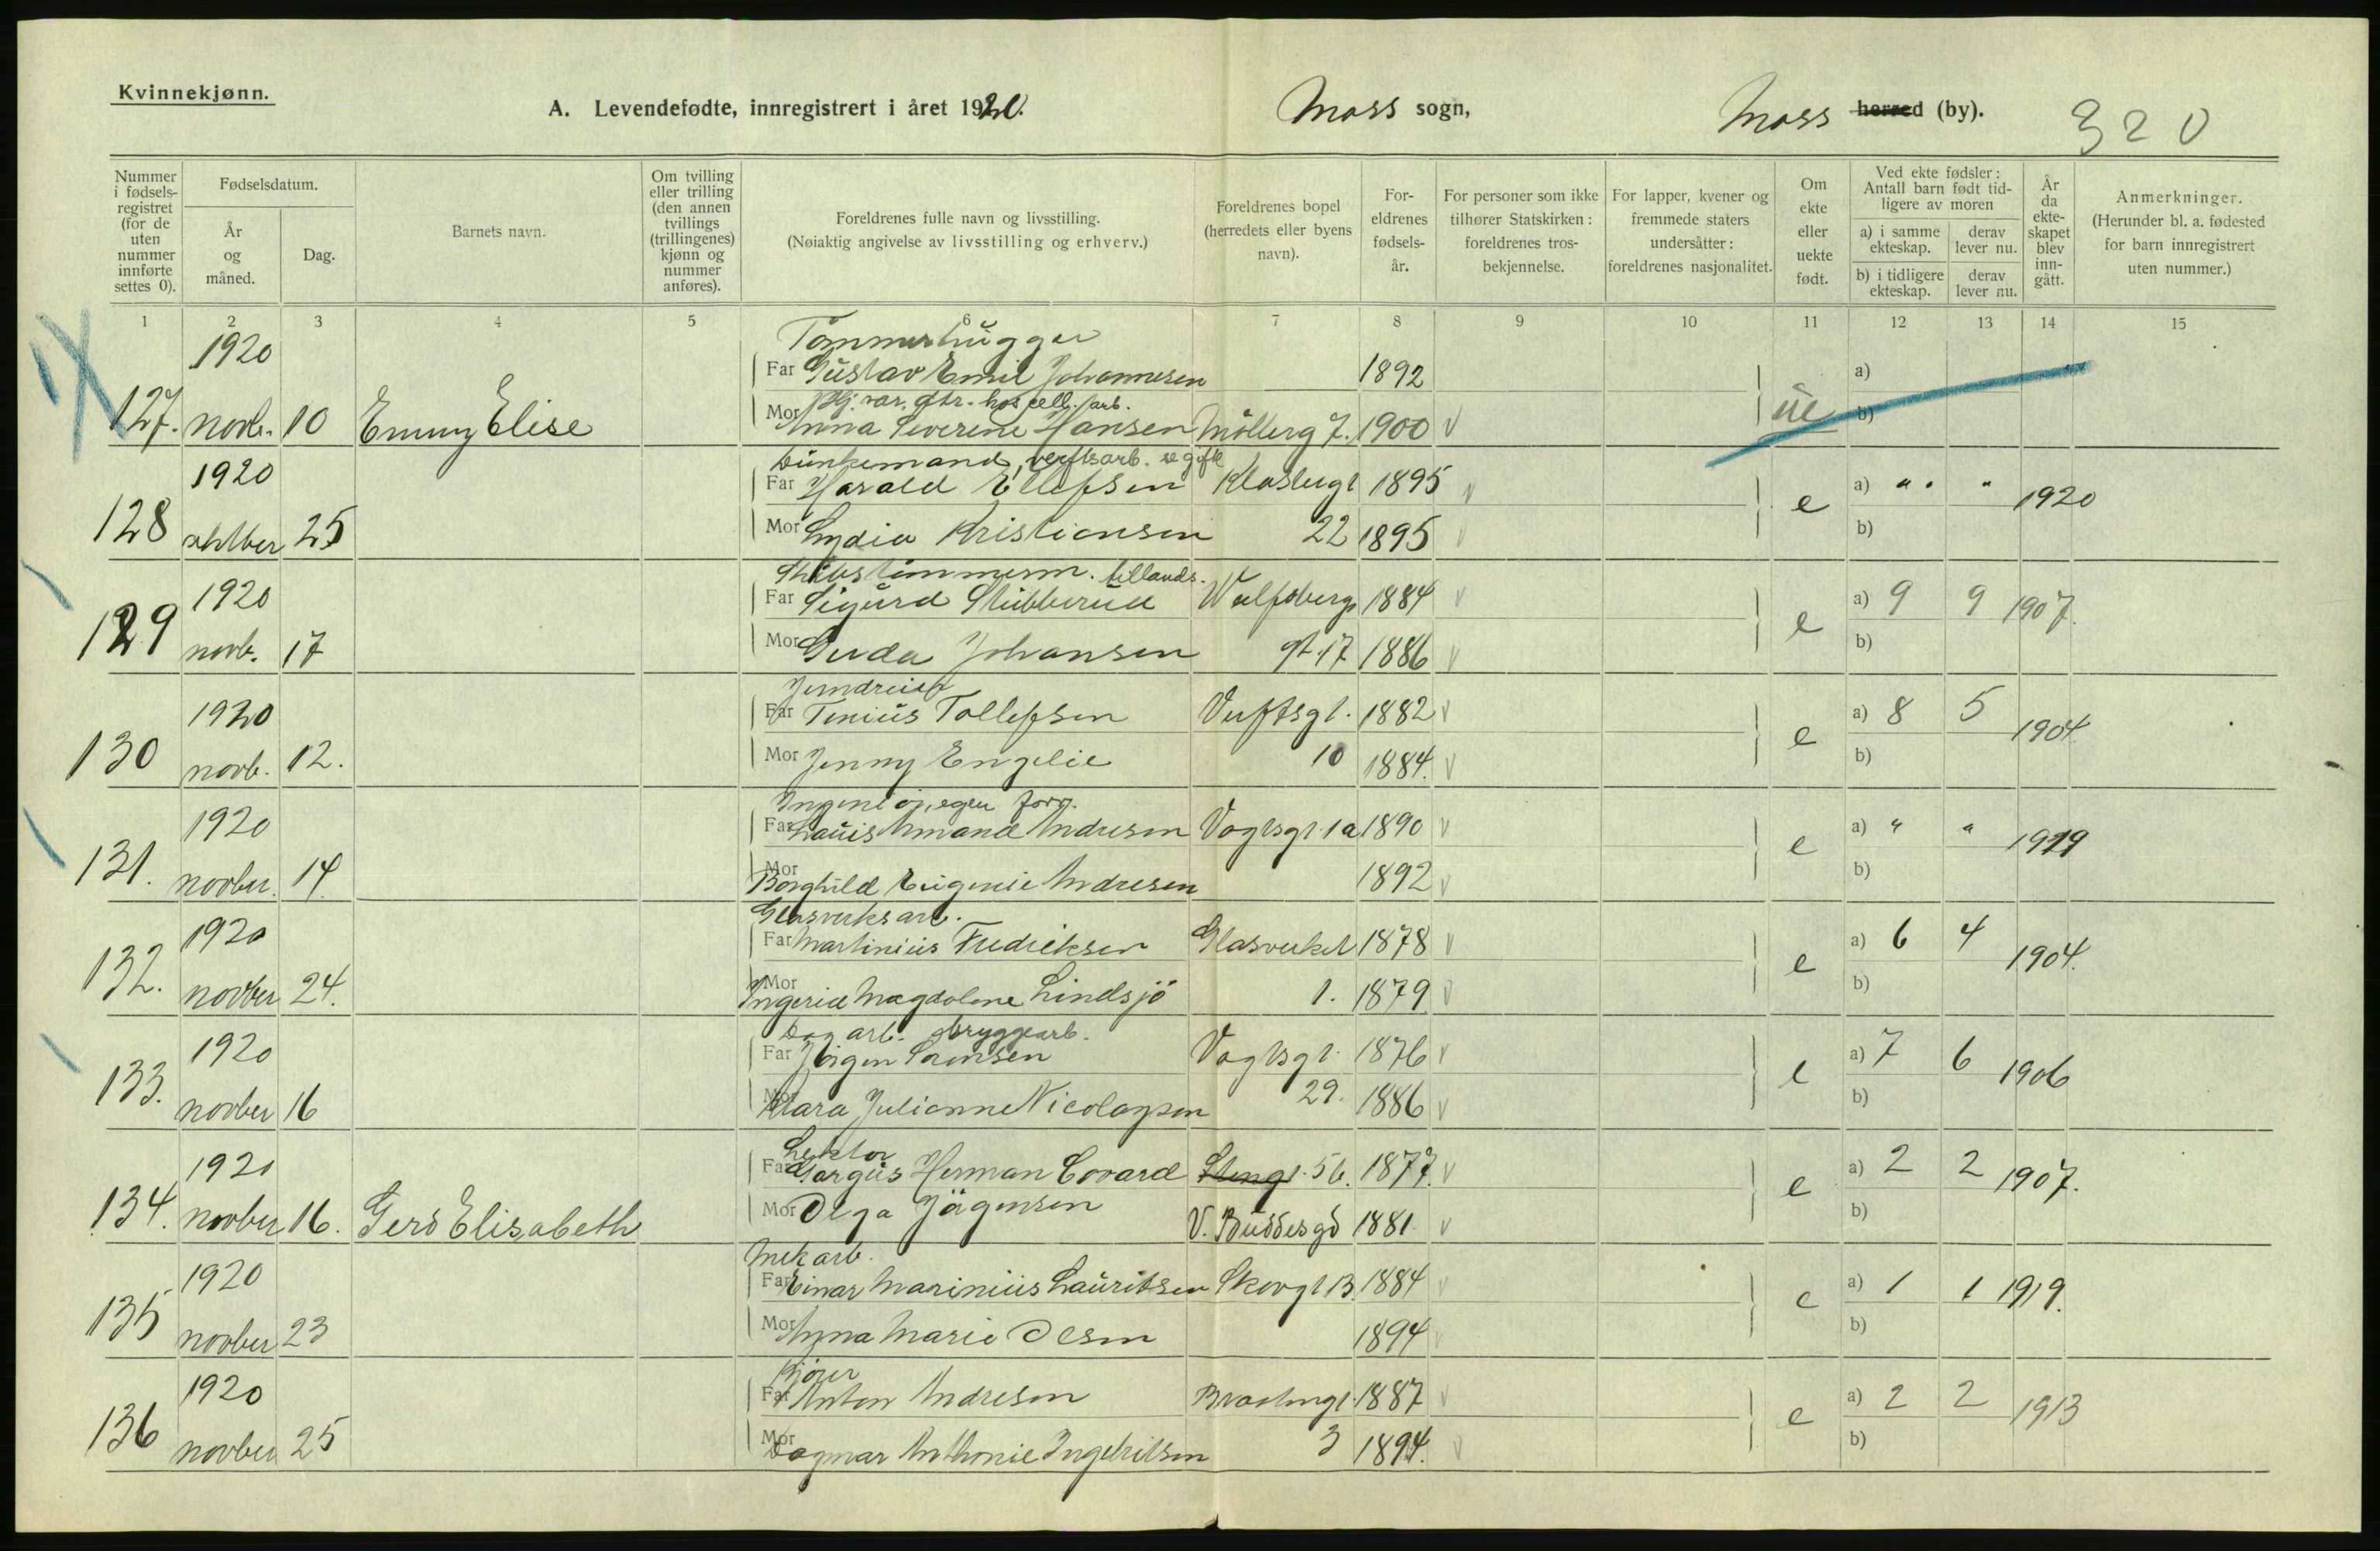 Kvinnekjønn.
A. Levendefødte, innregistrert i året 1920.
Moss sogn,
Moss herred (by).
320
Nummer i fødsels- registret (for de uten nummer innførte settes 0).
Fødselsdatum.
År og måned.
Dag.
Barnets navn.
Om tvilling eller trilling (den annen tvillings (trillingenes) kjønn og nummer anføres).
Foreldrenes fulle navn og livsstilling.
(Nøiaktig angivelse av livsstilling og erhverv.)
Foreldrenes bopel (herredets eller byens navn).
For- eldrenes fødsels- år.
For personer som ikke tilhører Statskirken: foreldrenes tros- bekjennelse.
For lapper, kvener og fremmede staters undersåtter: foreldrenes nasjonalitet.
Om ekte eller uekte født.
Ved ekte fødsler: Antall barn født tid- ligere av moren
a) i samme ekteskap.
derav lever nu.
b) i tidligere ekteskap.
derav lever nu.
År da ekte- skapet blev inn- gått.
Anmerkninger.
(Herunder bl. a. fødested for barn innregistrert uten nummer.)
1 2 3 4 5 6 7 8 9 10 11 12 13 14 15
1920
Tømmerhugger
Far Gustav Emil Johannesen 1892 a)
127. novb. 10 Emmy Elise
Mor Anna Severine Hansen Møllerg 7. 1900 ue b)
1920
verftsarb.
Far Harald Ellefsen Klostergt 1895 e a) " " 1920
128 oktber 25
Mor Lydia Kristiansen 22 1895 b)
Skibstømmerm. tillands.
1920
Far Sigurd Stubberud Wulfsberg 1884 e a) 9 9 1907.
129 novb. 17
Mor Gerda Johansen gt. 17 1886 b)
Jerndreier
1920
Far Tenius Tollefsen Verftsgt. 1882 e a) 8 5 1904
130 novb. 12.
Mor Jenny Engelie 10 1884. b)
Ingeniør, egen forr.
1920
Far Louis Amand Andresen Vogtsgt. 1a 1890 e a) " " 1919
131. novber. 14
Mor Borghild Eugenie Andresen 1892 b)
Glasverksarb.
1920
Far Martinius Fredriksen Glasverket 1878 e a) 6 4 1904.
132. novber 24.
Mor Ingerid Magdalene Lindsjö 1. 1879 b)
Dag arb. bryggearb.
1920
Far Jörgen Sörensen Vogtsgt. 1876 e a) 7 6 1906
133. novber 16
Mor Klara Julianne Nicolaysen 29. 1886 b)
Lektor
1920
Far Gargus Herman Covard Stengt. 56. 1877. e a) 2 2 1907.
134. novber 16. Gerd Elisabeth
Mor Olga Jörgensen V. Buddesgd 1881 b)
Mek arb.
1920
Far Einar Marinius Lauritsen Skovgt 13. 1884 e a) 1 1 1919.
135 novber 23
Mor Anna Marie Olsen 1894 b)
Kjører
1920
Far Anton Andresen 1887 e a) 2 2 1913
136 novber 25
Mor Dagmar Anthonie Ingebritsen 3 1894. b)